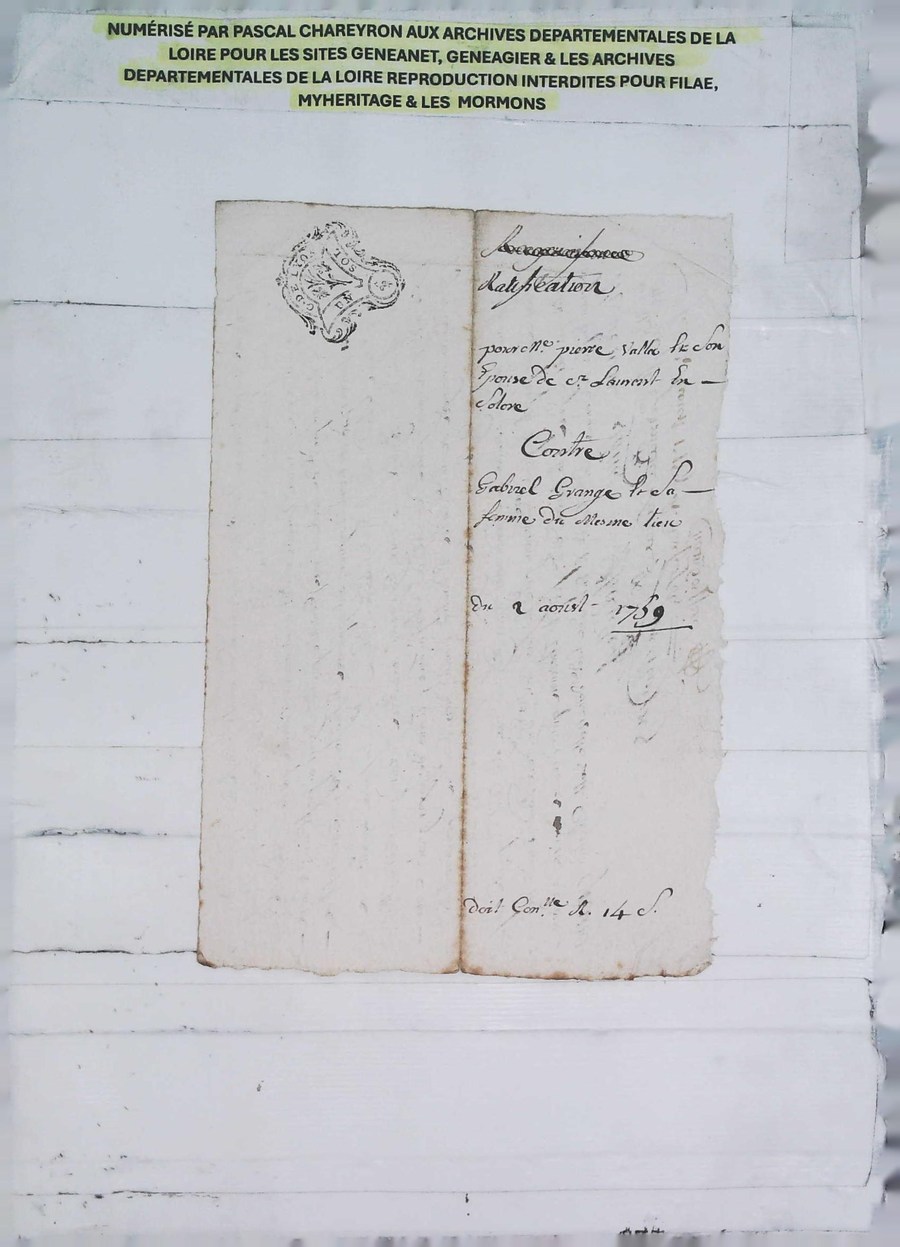 NUMÉRISÉ PAR PASCAL CHAREYRON AUX ARCHIVES DEPARTEMENTALES DE LA
LOIRE POUR LES SITES GENEANET, GENEAGIER & LES ARCHIVES
DEPARTEMENTALES DE LA LOIRE REPRODUCTION INTERDITES POUR FILAE,
MYHERITAGE & LES MORMONS
G. DE LYON
UN SOL
Ratification
pour Me. pierre Valla et Son
Epouse de st Laurent En
Solore
Contre
Gabriel Grange et Sa
femme du Mesme lieu
du 2 aoust 1759
doit Con.lle R. 14 S.